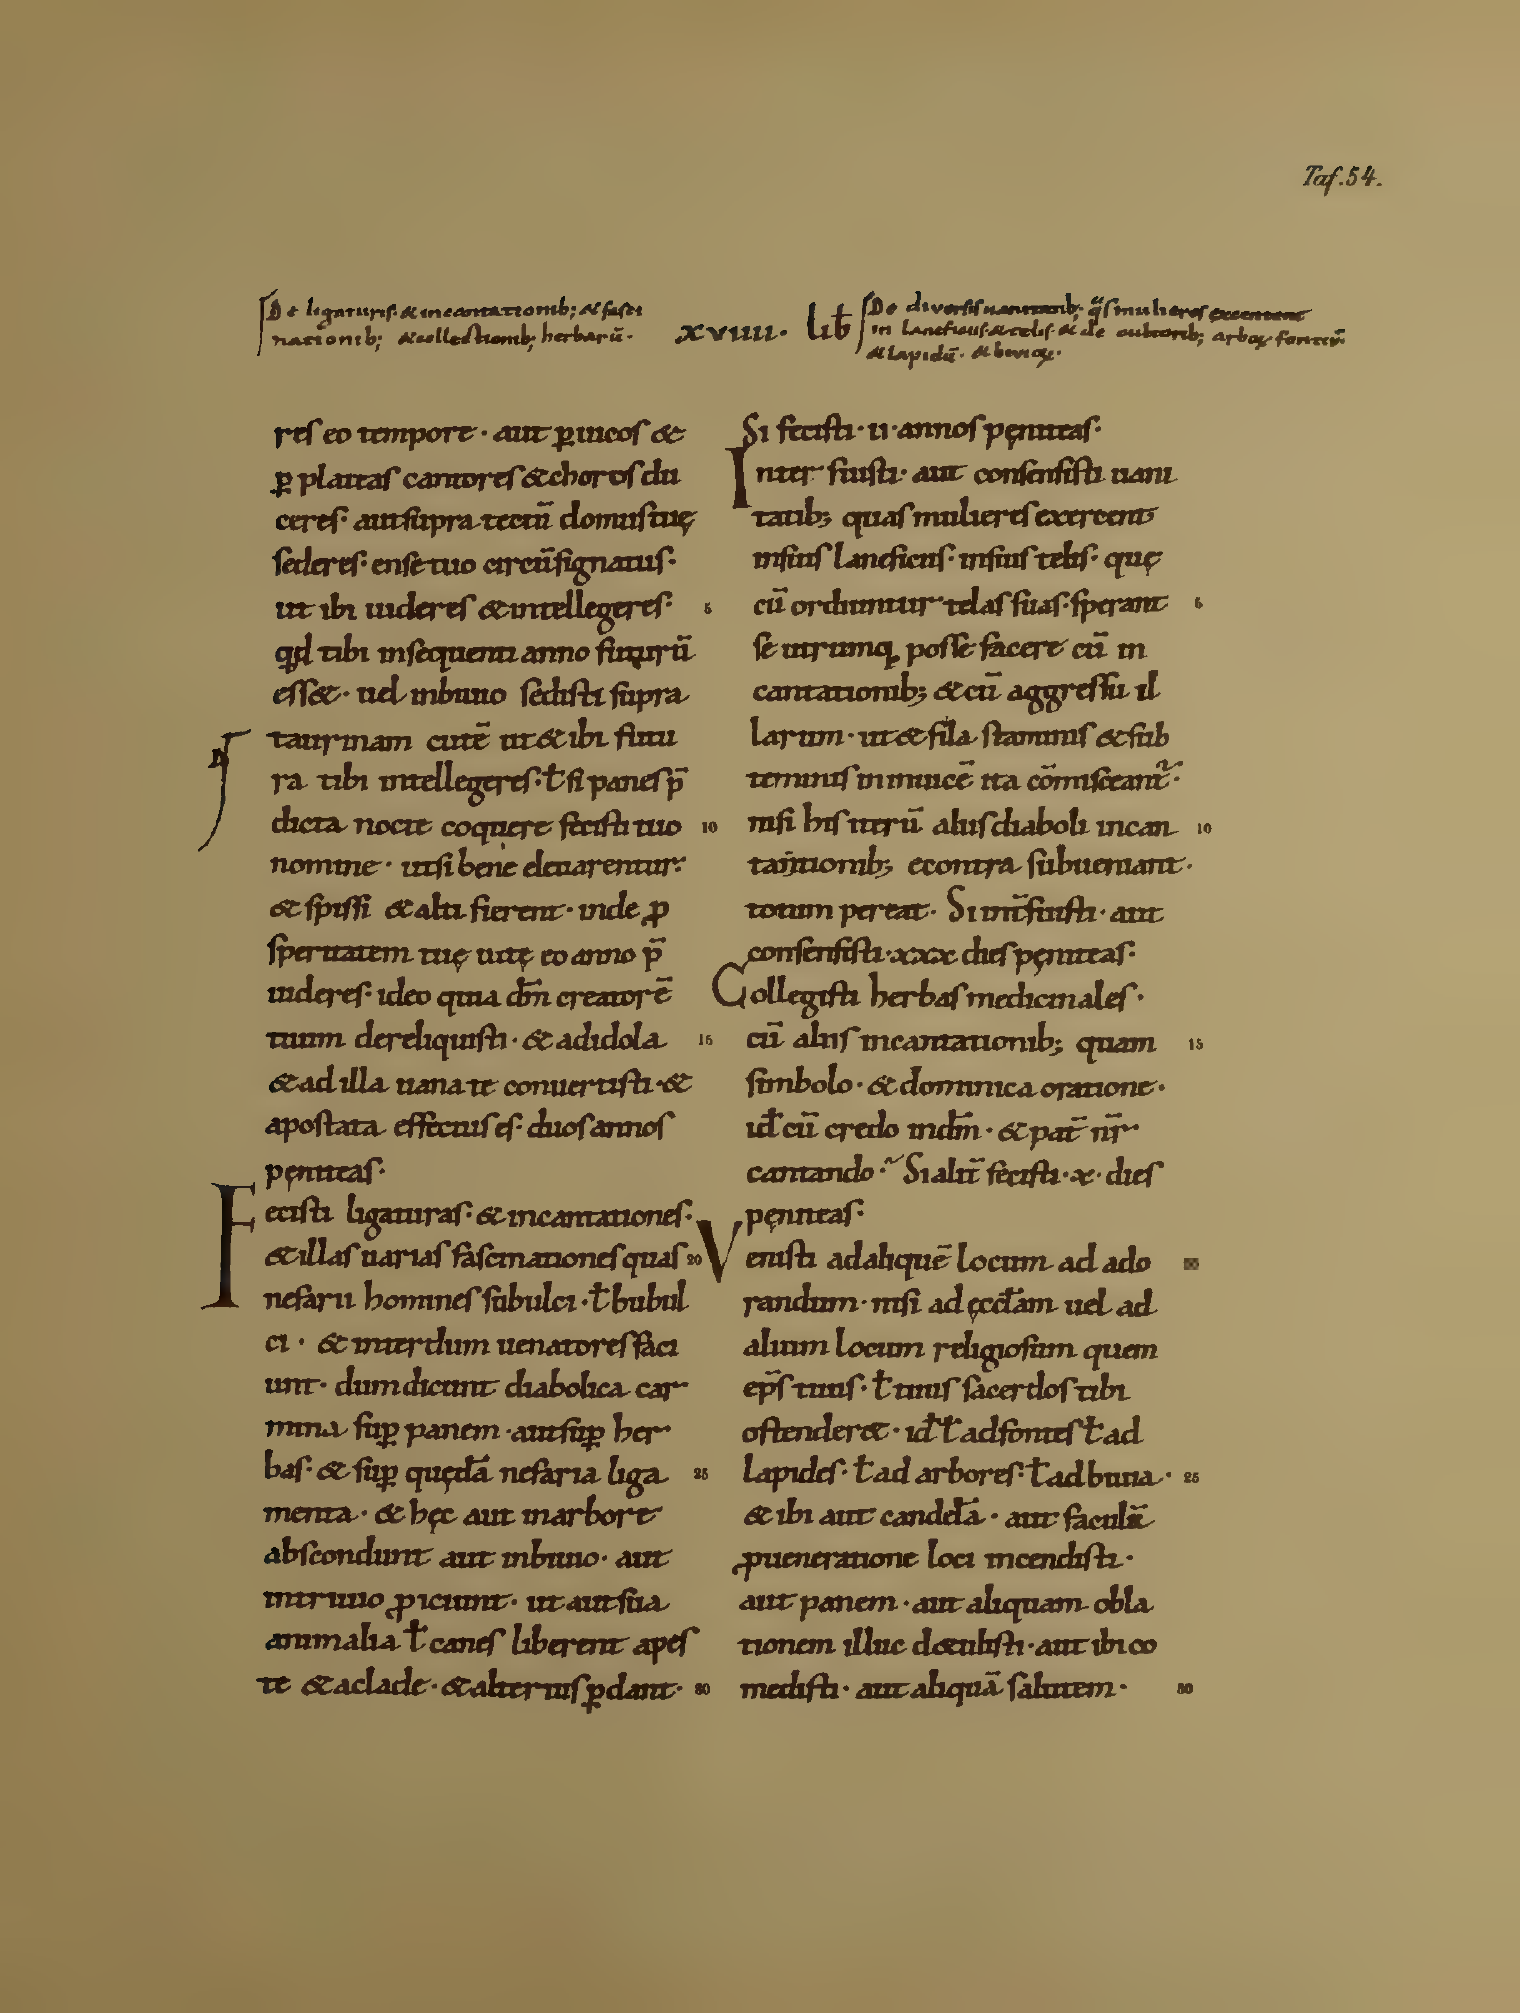 Taf. 54.
De ligaturis· & incantationib; & fasci
nationib; & collectionib; herbarū·
xviiii· lib̄
De diversis vanitatib; q̄s mulieres exercent
in laneficiis· & telis· & de cultorib; arboꝝ fontiū·
& lapidū· & bivioꝝ·
res eo tempore· aut ꝑ uicos &
ꝑ plateas cantores & choros du
ceres· aut supra tectū domus tuę
sederes· ense tuo circū signatus·
ut ibi uideres & intellegeres· 5
qd tibi insequenti anno futurū
ess&· uel in biuio sedisti supra
taurinam cutē ut & ibi futu
ra tibi intellegeres· ł si panes p̄
dicta nocte coquere fecisti tuo 10
nomine· ut si bene eleuarentur·
& spissi & alti fierent· inde ꝓ
speritatem tuę uitę eo anno p̄
uideres· ideo quia dm̄ creatorē
tuum dereliquisti· & ad idola 15
& ad illa uana te conuertisti· &
apostata effectus es· duos annos
pęniteas·
Fecisti ligaturas· & incantationes·
& illas uarias fascinationes quas 20
nefarii homines subulci· ł bubul
ci· & interdum uenatores faci
unt· dum dicunt diabolica car
mina sup̱ panem· aut sup̱ her
bas· & sup̱ quędā nefaria liga 25
menta· & hęc aut in arbore
abscondunt aut in biuio· aut
in triuio ꝓiciunt· ut aut sua
animalia ł canes liberent a pes
te & a clade· & alterius ꝑdant· 30
Si fecisti· ii· annos pęniteas·
Interfuisti· aut consensisti uani
tatib; quas mulieres exercent
in suis laneficiis· in suis telis· quę
cū ordiuntur telas suas· sperant 5
se utrumq; posse facere cū in
cantationib; & cū aggressu il
larum· ut & fila staminis & sub
teminis in inuicē ita cōmisceant̄·
nisi his iterū aliis diaboli incan 10
tationib; econtra subueniant·
totum pereat· Si int̄fuisti· aut
consensisti· xxx dies pęniteas·
Collegisti herbas medicinales·
cū aliis incantationib; quam 15
simbolo· & dominica oratione·
id ē cū credo in dm̄· & pat̄ nr̄
cantando· Si alit̄ fecisti· x· dies
pęniteas·
Venisti ad aliquē locum ad ado
randum· nisi ad ęccłam uel ad
alium locum religiosum quem
ep̄s tuus· ł tuus sacerdos tibi
ostender&· id ē ł ad fontes ł ad
lapides· ł ad arbores· ł ad biuia· 25
& ibi aut candelā· aut faculā
ꝓ ueneratione loci incendisti·
aut panem· aut aliquam obla
tionem illuc detulisti· aut ibi co
medisti· aut aliquā salutem· 30